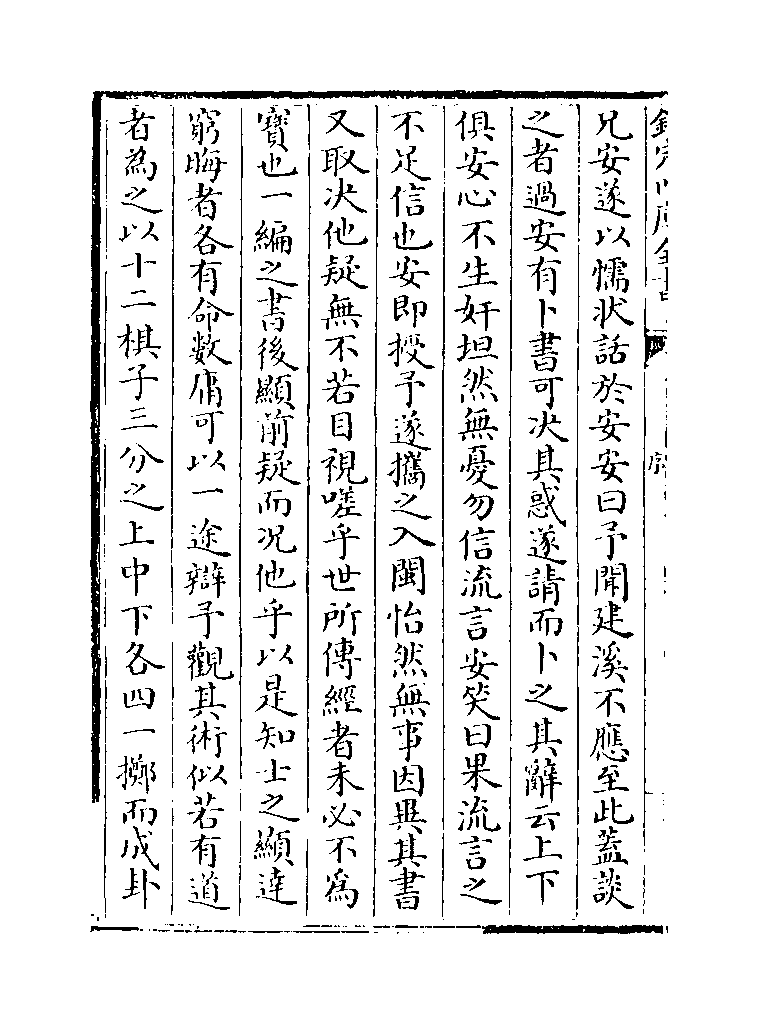 兄安遂以懦状話於安安曰予聞建溪不應至此蓋談
之者過安有卜書可决其惑遂請而卜之其辭云上下
俱安心不生奸坦然無憂勿信流言安笑曰果流言之
不足信也安即授予遂攜之入閩怡然無事因異其書
又取决他疑無不若目視嗟乎世所傳經者未必不爲
寳也一編之書後顯前疑而况他乎以是知士之顯達
窮晦者各有命數庸可以一途辯予觀其術似若有道
者為之以十二棋子三分之上中下各四一擲而成卦